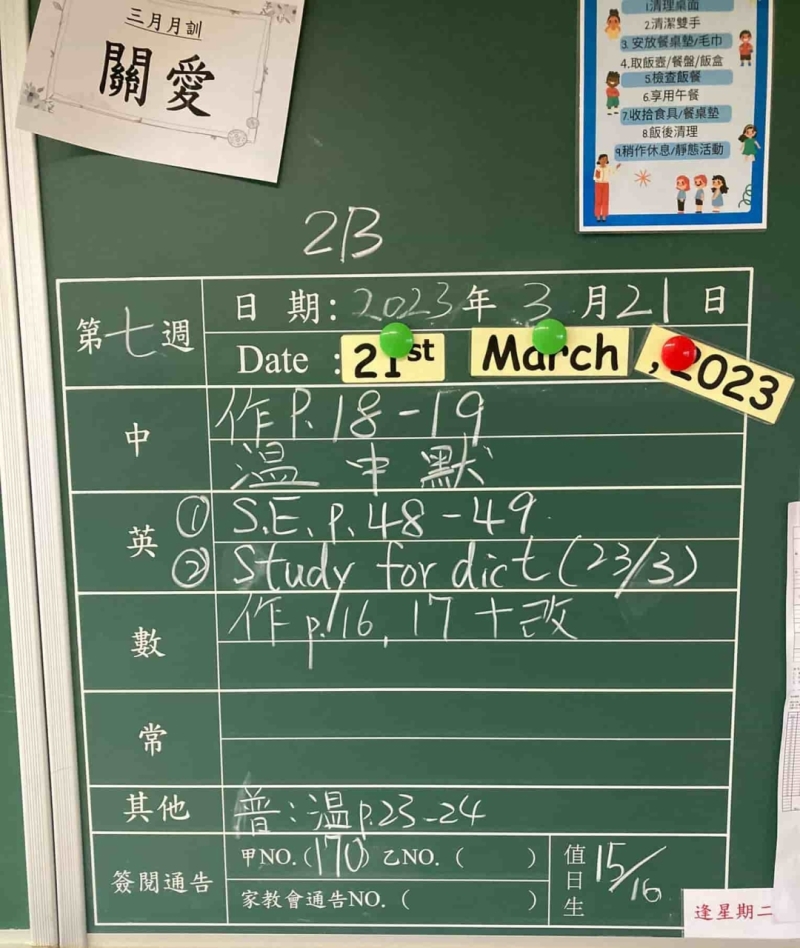 三月月訓
關愛
1清理桌面
2.清潔雙手
3.安放餐桌墊/毛巾
4.取飯壺/餐盤/飯盒
5.檢查飯餐
6.享用午餐
7.收拾食具/餐桌墊
8.飯後清理
9.稍作休息/靜態活動
2B
第七週
日期:2023年3月21日
Date : 21st March ,2023
中
作P.18-19
溫中默
英
① S.E. p.48-49
② Study for dict (23/3)
數
作p.16, 17+改
常
其他
普:溫p.23-24
簽閱通告
甲NO.(170) 乙NO.( )
家教會通告NO.( )
值日生
15/16
逢星期二